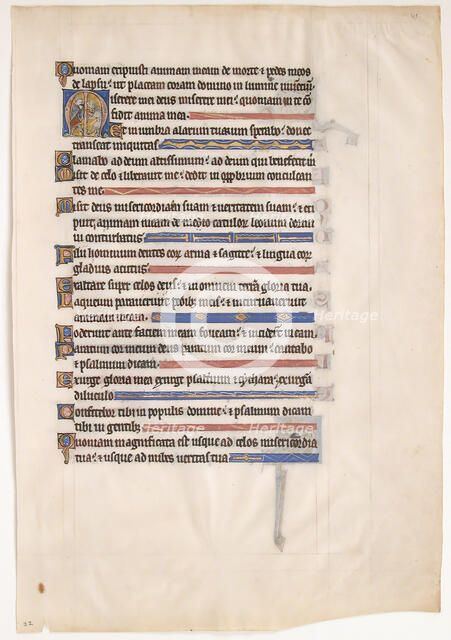 Quoniam eripuisti animam meam de morte & pedes meos
de lapsu: ut placeam coram domino in lumine
iserere mei deus miserere mei: quoniam in te con
fidit anima mea.
Et in umbra alarum tuarum sperabo: donec
transeat iniquitas
Clamabo ad deum altissimum: ad deum qui benefecit m
isit de celo & liberavit me: dedit in opprobrium conculcan
tes me.
isit deus misericordiam suam & veritatem suam: & eri
puit animam meam de medio catulorum leonum dormiui
conturbatus
Filii hominum dentes eorum arma & sagitte: & lingua eor
gladius acutus
Exaltare super celos deus: & in omnem terram gloria tua.
Laqueum paraverunt pedibus meis: & incurvaverunt
animam meam.
Foderunt ante faciem meam foveam: & inciderunt in eam
Paratum cor meum deus paratum cor meum: cantabo
& psalmum dicam
Exurge gloria mea exurge psalterium & cythara: exurgam
diluculo
Confitebor tibi in populis domine: & psalmum dicam
tibi in gentibus
Quoniam magnificata est usque ad celos misericordia
tua: & usque ad nubes veritas tua
Heritage
Heritage
32